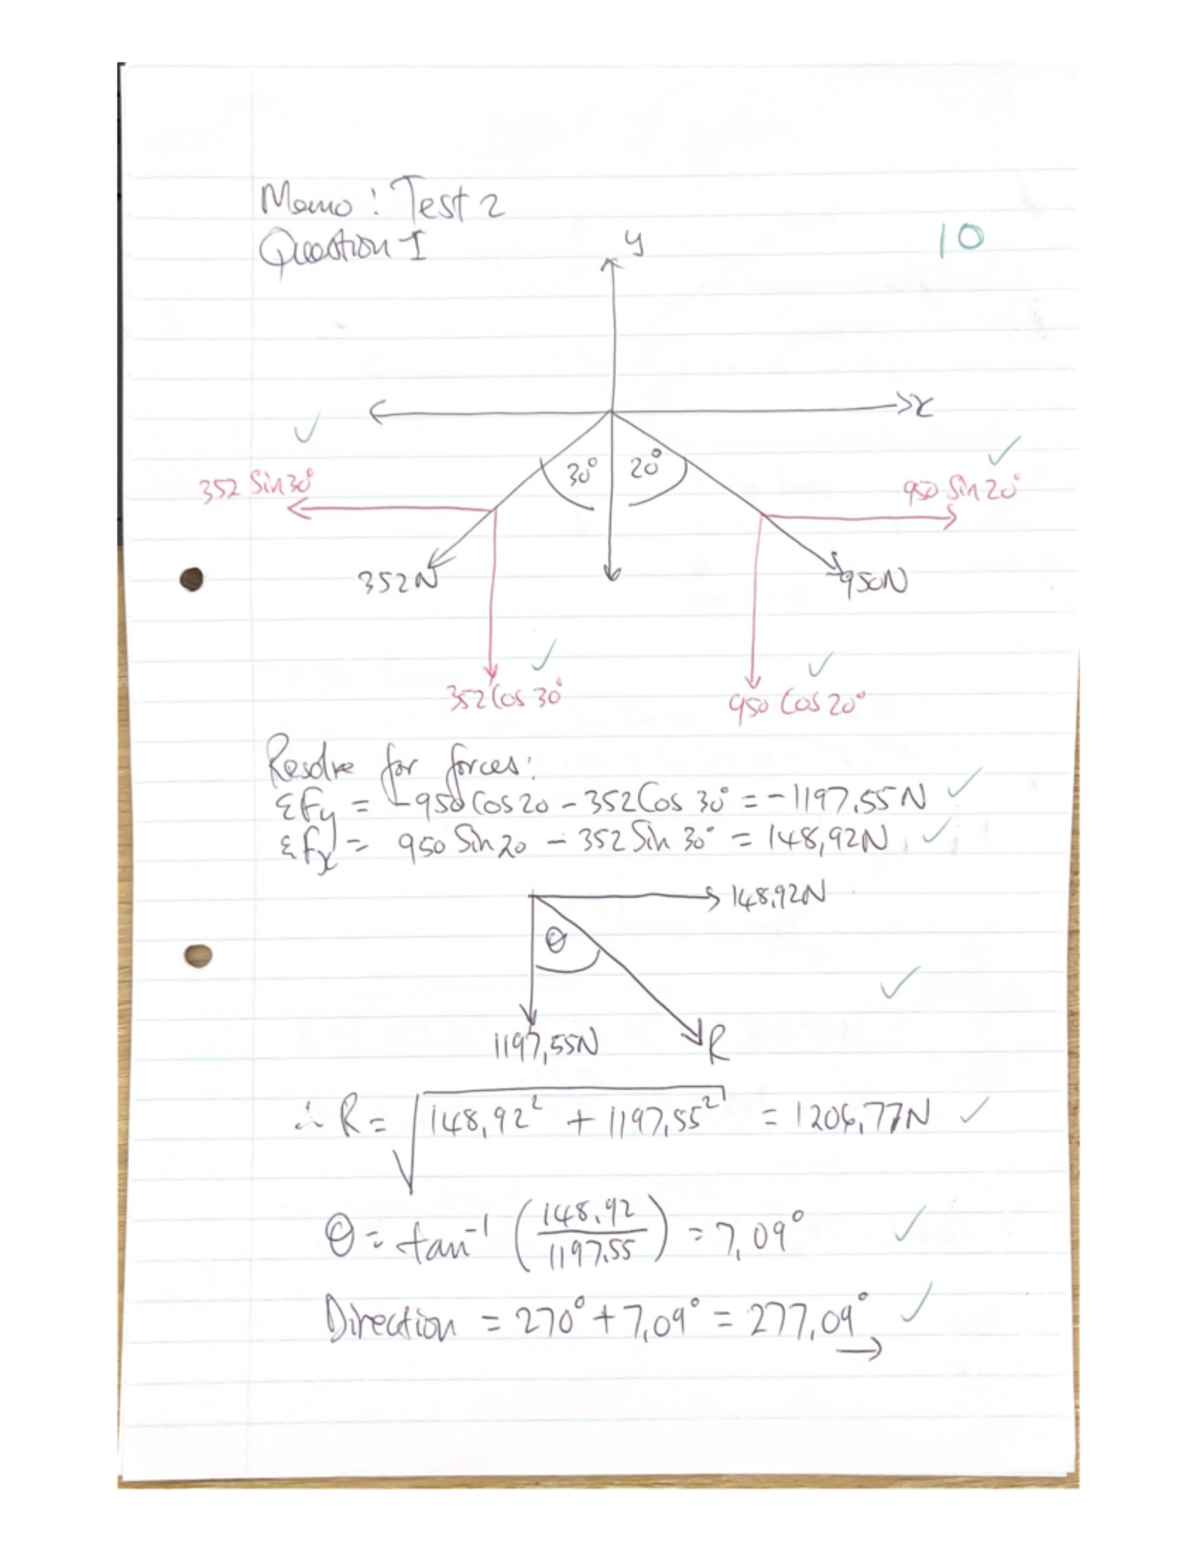 Memo: Test 2
Question 1
10
y
x
30° 20°
352 Sin 30°
950 Sin 20°
352N
950N
352 Cos 30°
950 Cos 20°
Resolve for forces:
ΣFy = -950 Cos 20 - 352 Cos 30° = -1197,55N
ΣFx = 950 Sin 20 - 352 Sin 30° = 148,92N
148,92N
θ
1197,55N
R
∴ R = √148,92² + 1197,55² = 1206,77N
θ = tan⁻¹ (148,92/1197,55) = 7,09°
Direction = 270° + 7,09° = 277,09°